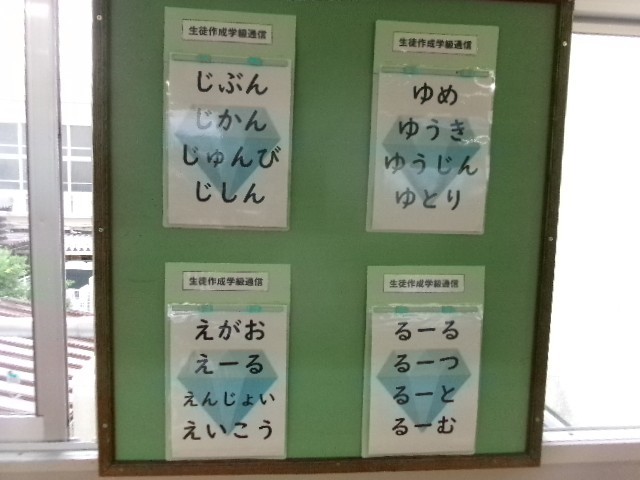 生徒作成学級通信
じぶん
じかん
じゅんび
じしん
生徒作成学級通信
ゆめ
ゆうき
ゆうじん
ゆとり
生徒作成学級通信
えがお
えーる
えんじょい
えいこう
生徒作成学級通信
るーる
るーつ
るーと
るーむ